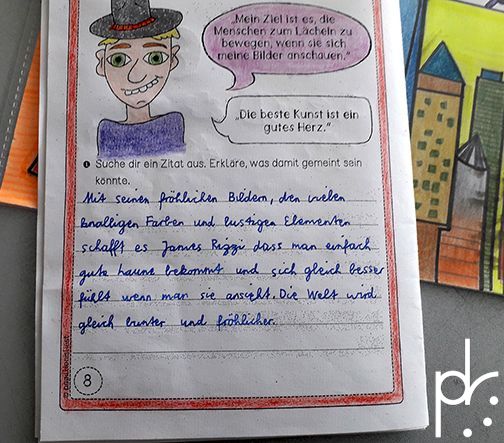 „Mein Ziel ist es, die
Menschen zum Lächeln zu
bewegen, wenn sie sich
meine Bilder anschauen.“
„Die beste Kunst ist ein
gutes Herz.“
1 Suche dir ein Zitat aus. Erkläre, was damit gemeint sein
könnte.
Mit seinen fröhlichen Bildern, den vielen
knalligen Farben und lustigen Elementen
schafft es James Rizzi dass man einfach
gute laune bekommt und sich gleich besser
fühlt wenn man sie ansieht. Die Welt wird
gleich bunter und fröhlicher.
8
pr